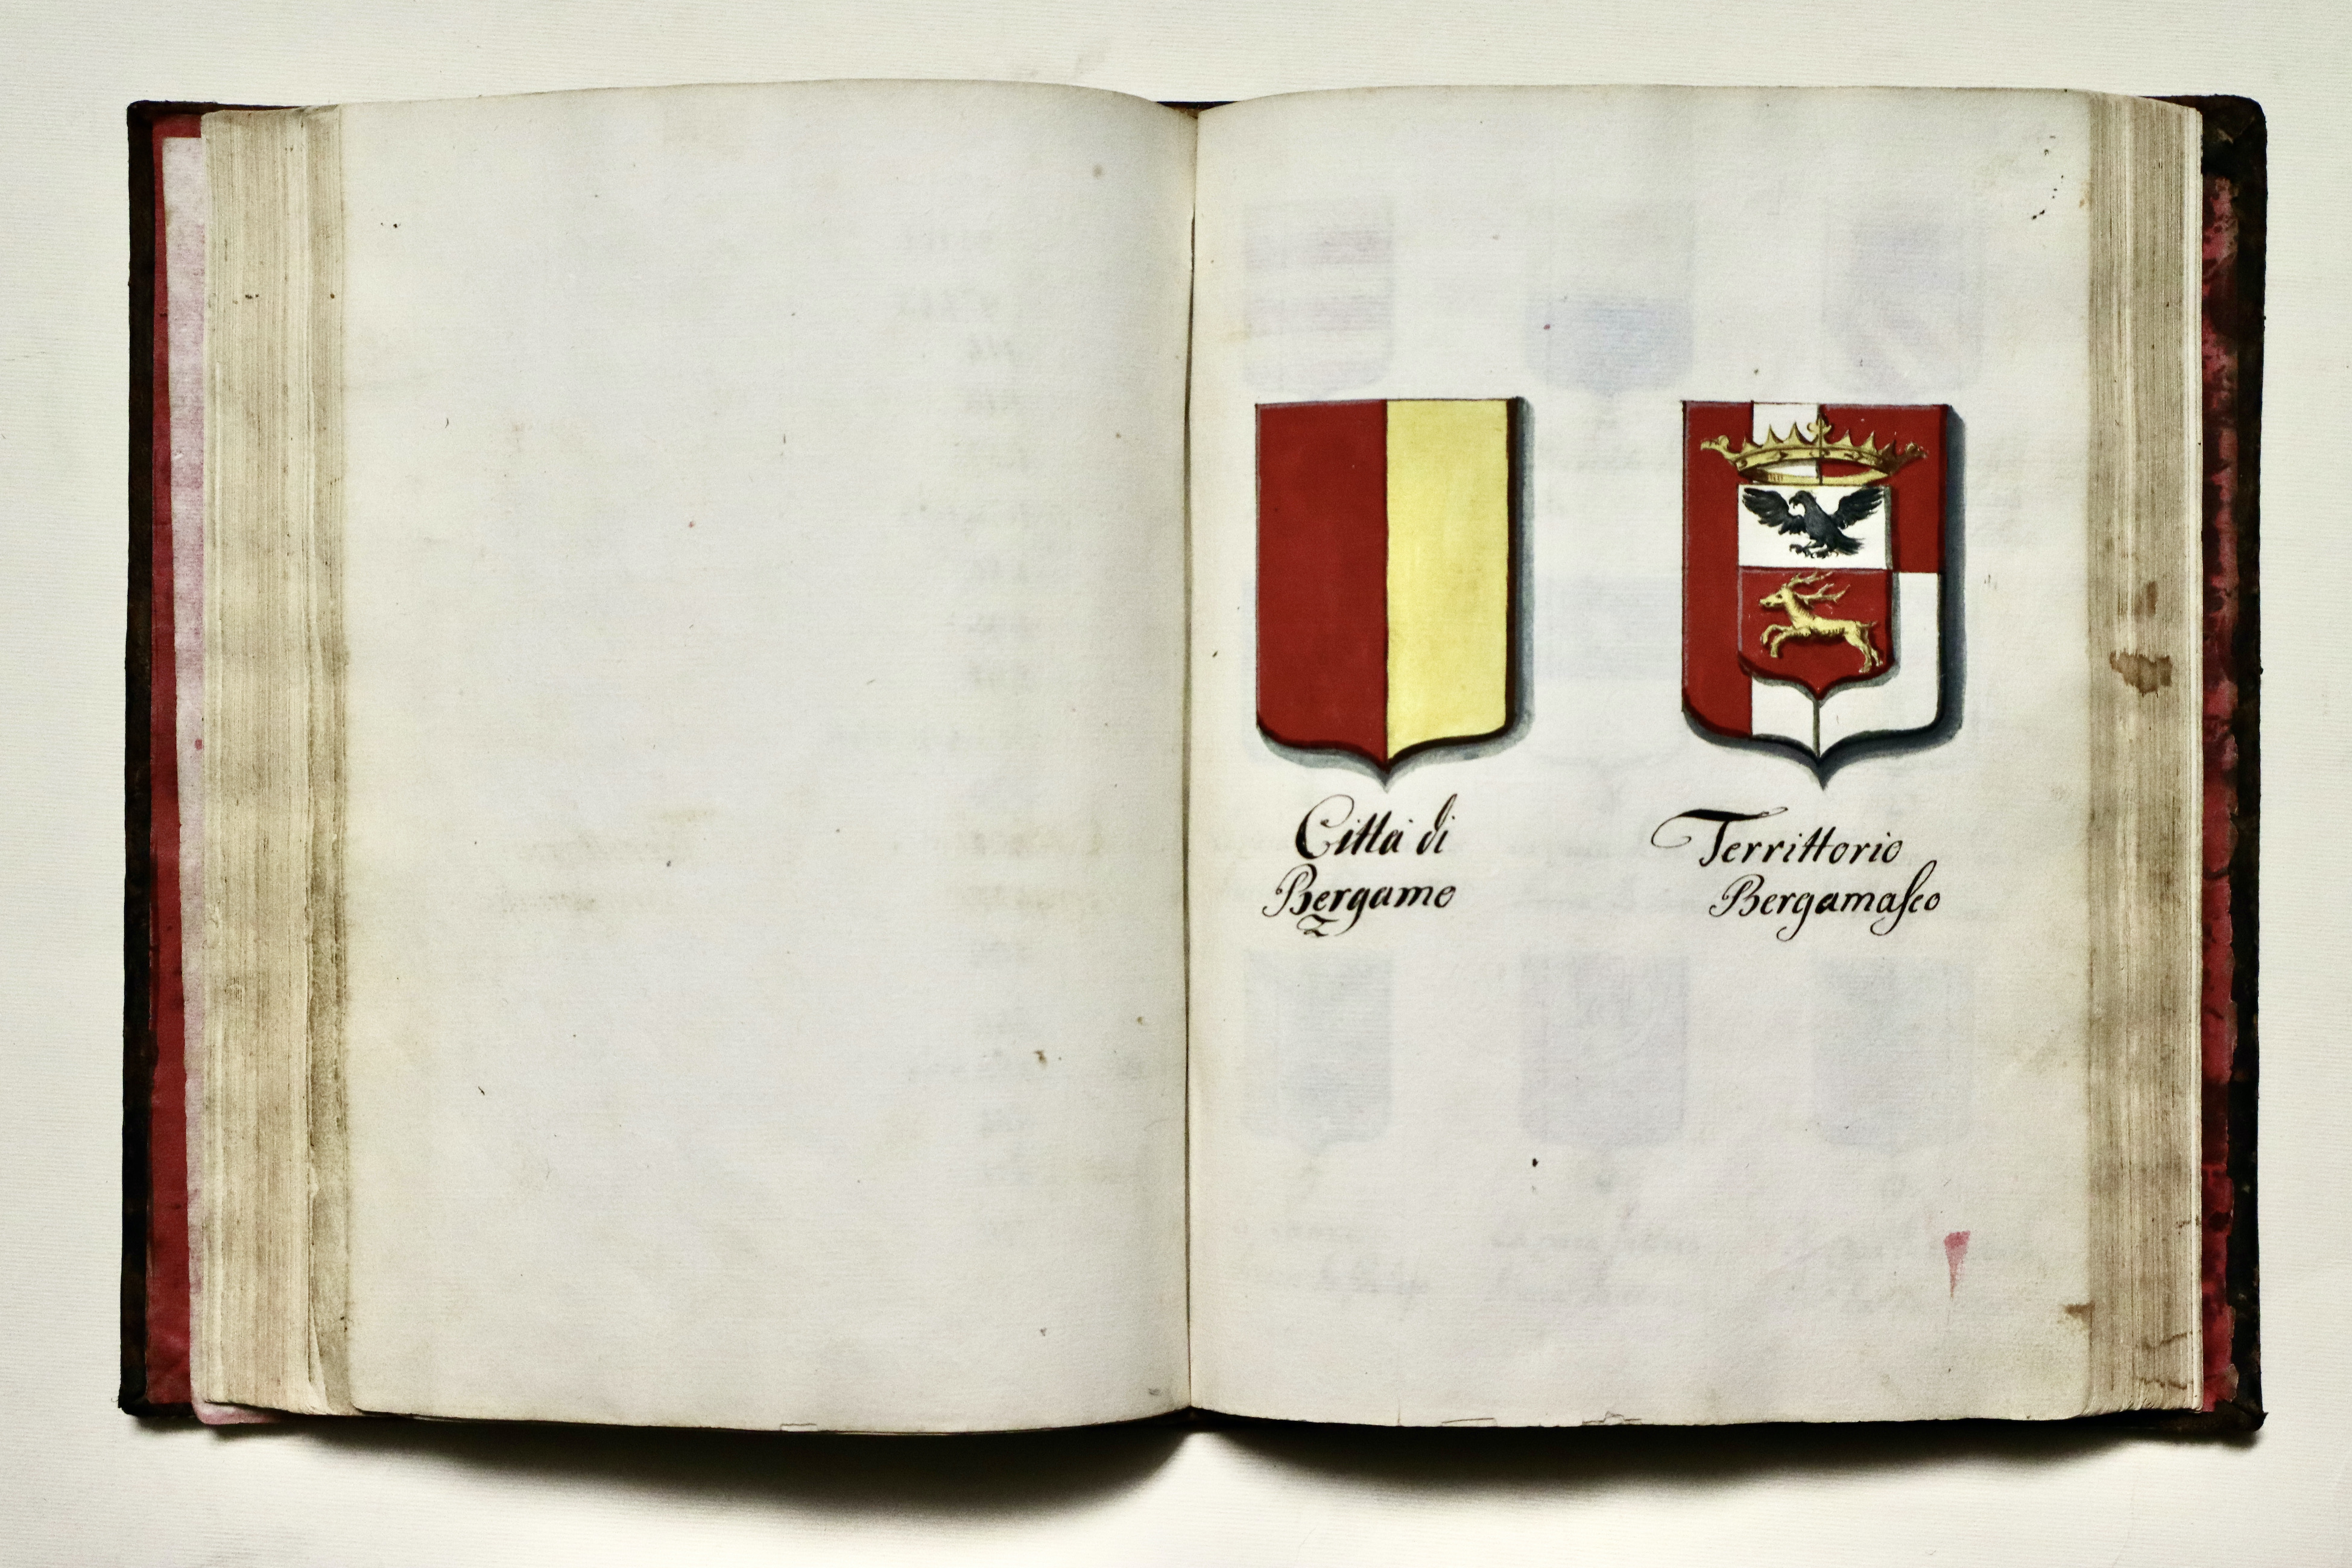 Città di
Bergamo
Territtorio
Bergamaſco